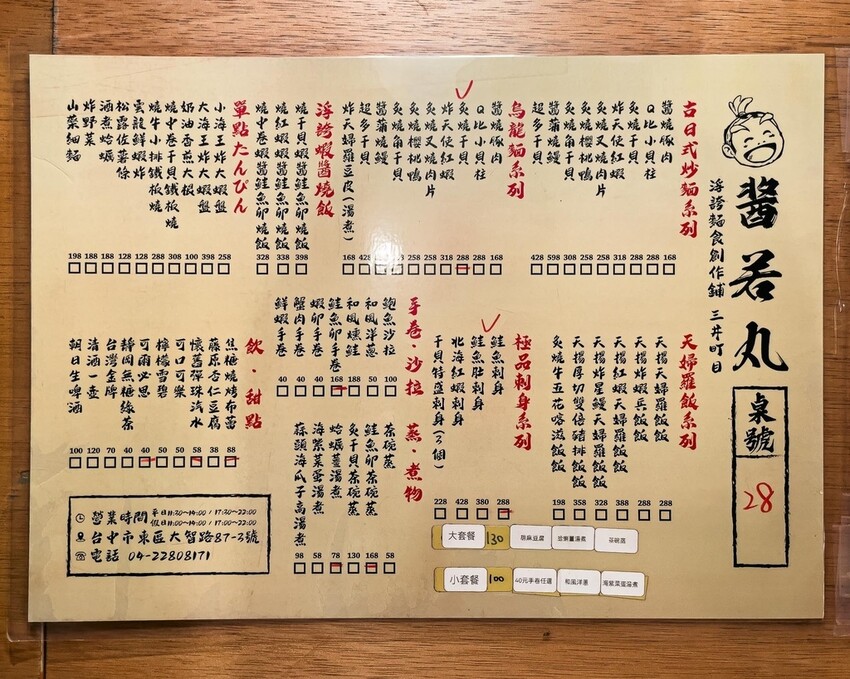 醬若丸
浮誇麵食創作鋪 三井町目
桌號
28
古日式炒麵系列
醬燒豚肉
Q比小貝柱
炙燒干貝
炸天使紅蝦
炙燒叉燒肉片
炙燒櫻桃鴨
炙燒角干貝
醬蒲燒鰻
超多干貝
烏龍麵系列
醬燒豚肉
Q比小貝柱
炙燒干貝
炸天使紅蝦
炙燒叉燒肉片
炙燒櫻桃鴨
炙燒角干貝
醬蒲燒鰻
超多干貝
炸天婦羅豆皮(湯煮)
浮誇蝦醬燒飯
燒干貝蝦醬鮭魚卵燒飯 398
燒紅蝦蝦醬鮭魚卵燒飯 338
燒中卷蝦醬鮭魚卵燒飯 328
單點たんぴん
小海王炸大蝦盤 258
大海王炸大蝦盤 398
奶油杏煎大根 100
燒中卷干貝鐵板燒 308
燒牛小排鐵板燒 288
雲龍鮮蝦炸 288
松露佐薯條 128
酒煮蛤蠣 188
炸野菜 188
山藥細麵 198
天婦羅飯系列
天揚天婦羅飯飯 288
天揚炸蝦兵飯飯 288
天揚紅蝦天婦羅飯飯 388
天揚炸星鰻天婦羅飯飯 328
天揚厚切雙倍豬排飯飯 358
炙燒牛五花喀滋飯飯 198
極品刺身系列
鮭魚刺身 288
鮭魚肚刺身 380
北海紅蝦刺身 428
干貝特選刺身(3個) 228
手卷・沙拉
鮑魚沙拉 100
和風洋蔥 50
和風燻鮭 188
鮭魚卵手卷 168
蝦卵手卷 40
蟹肉手卷 40
鮮蝦手卷 40
蒸・煮物
茶碗蒸 58
鮭魚卵茶碗蒸 168
炙干貝茶碗蒸 130
蛤蠣薑湯煮 78
海紫菜蛋湯煮 58
蒜頭海瓜子高湯煮 98
飲・甜點
焦糖燒烤布蕾 88
藤原杏仁豆腐 38
懷舊彈珠汽水 58
可口可樂 50
檸檬雪碧 50
可爾必思 40
靜岡無糖綠茶 40
台灣金牌 70
清酒一壺 120
朝日生啤酒 100
大套餐 130 胡麻豆腐 蛤蠣薑湯煮 茶碗蒸
小套餐 100 40元手卷任選 和風洋蔥 海紫菜蛋湯煮
營業時間 平日11:30~14:00 / 17:30~22:00
假日11:00~14:00 / 17:00~22:00
台中市東區大智路87-3號
電話 04-22808171